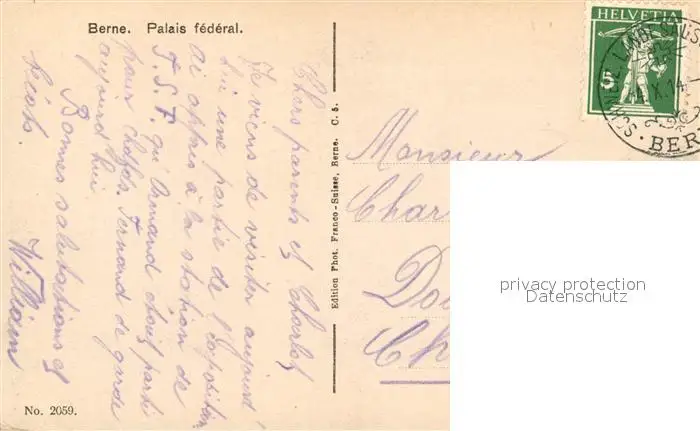 Berne. Palais fédéral.
Chers parents et Charles
Je viens de visiter aujourd'
hui une partie de l'exposition
ai appris à la station de
T.S.F. qu'Armand était parti
pour Fernand de garde
aujourd'hui
Bonnes salutations et
William
No. 2059.
Edition Phot. Franco-Suisse, Berne. C. 5.
HELVETIA
5
X.14
BER
Monsieur
Char
Do
Ch
privacy protection
Datenschutz